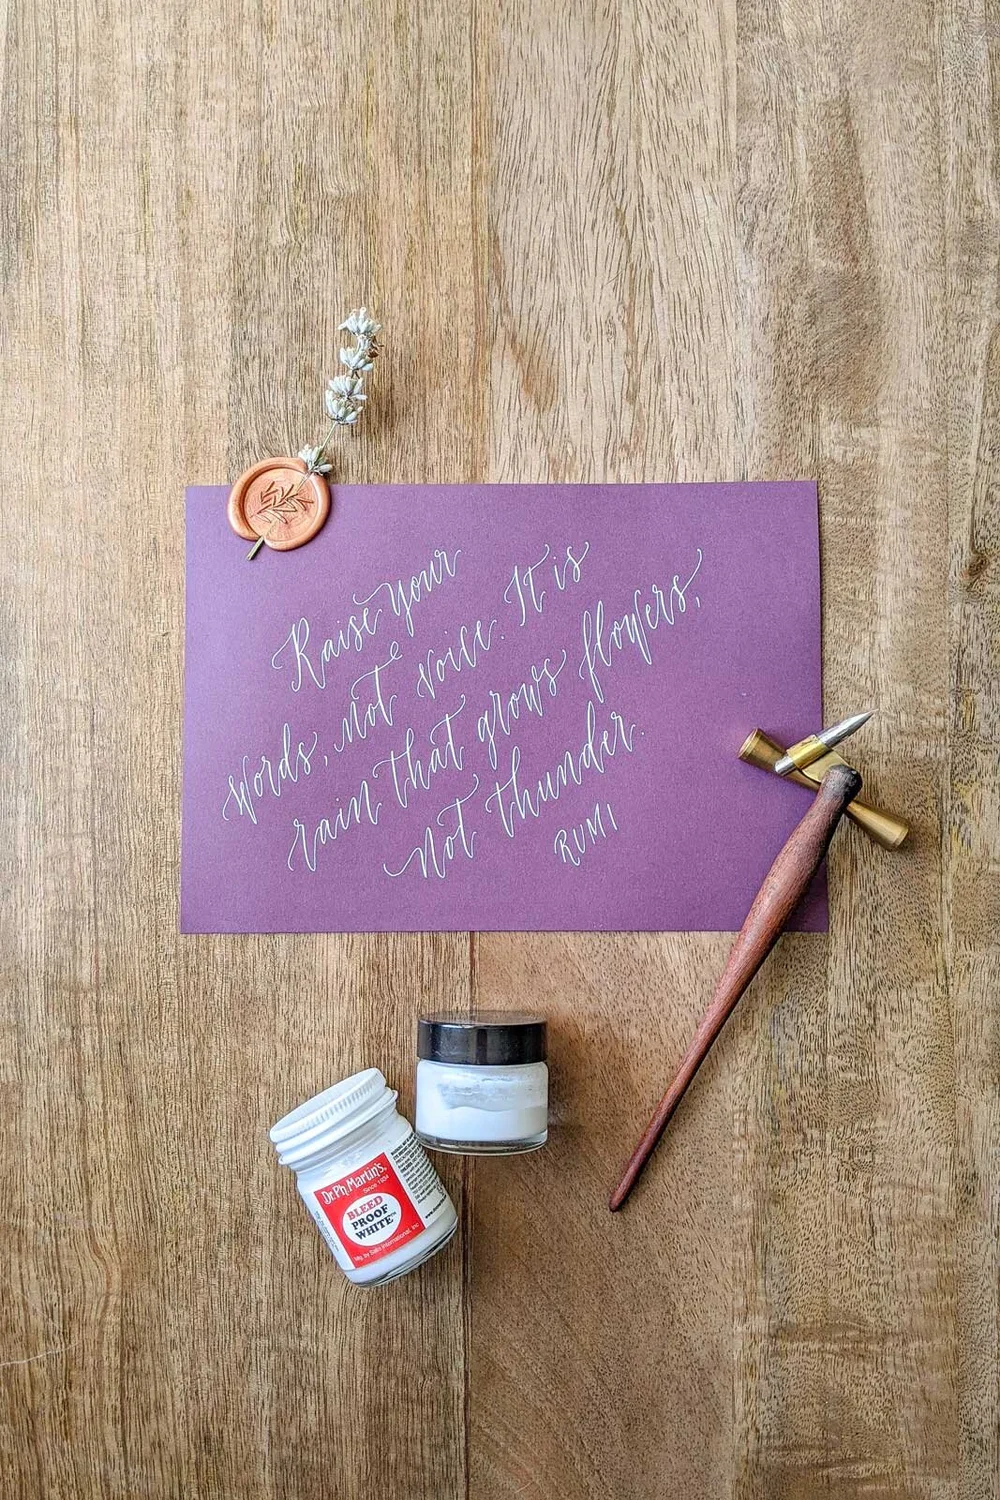 Raise your
words, not voice. It is
rain that grows flowers,
not thunder.
RUMI
Dr. Ph. Martin's
Since 1934
BLEED
PROOF
WHITE™
Mfg. by Salis International, Inc.